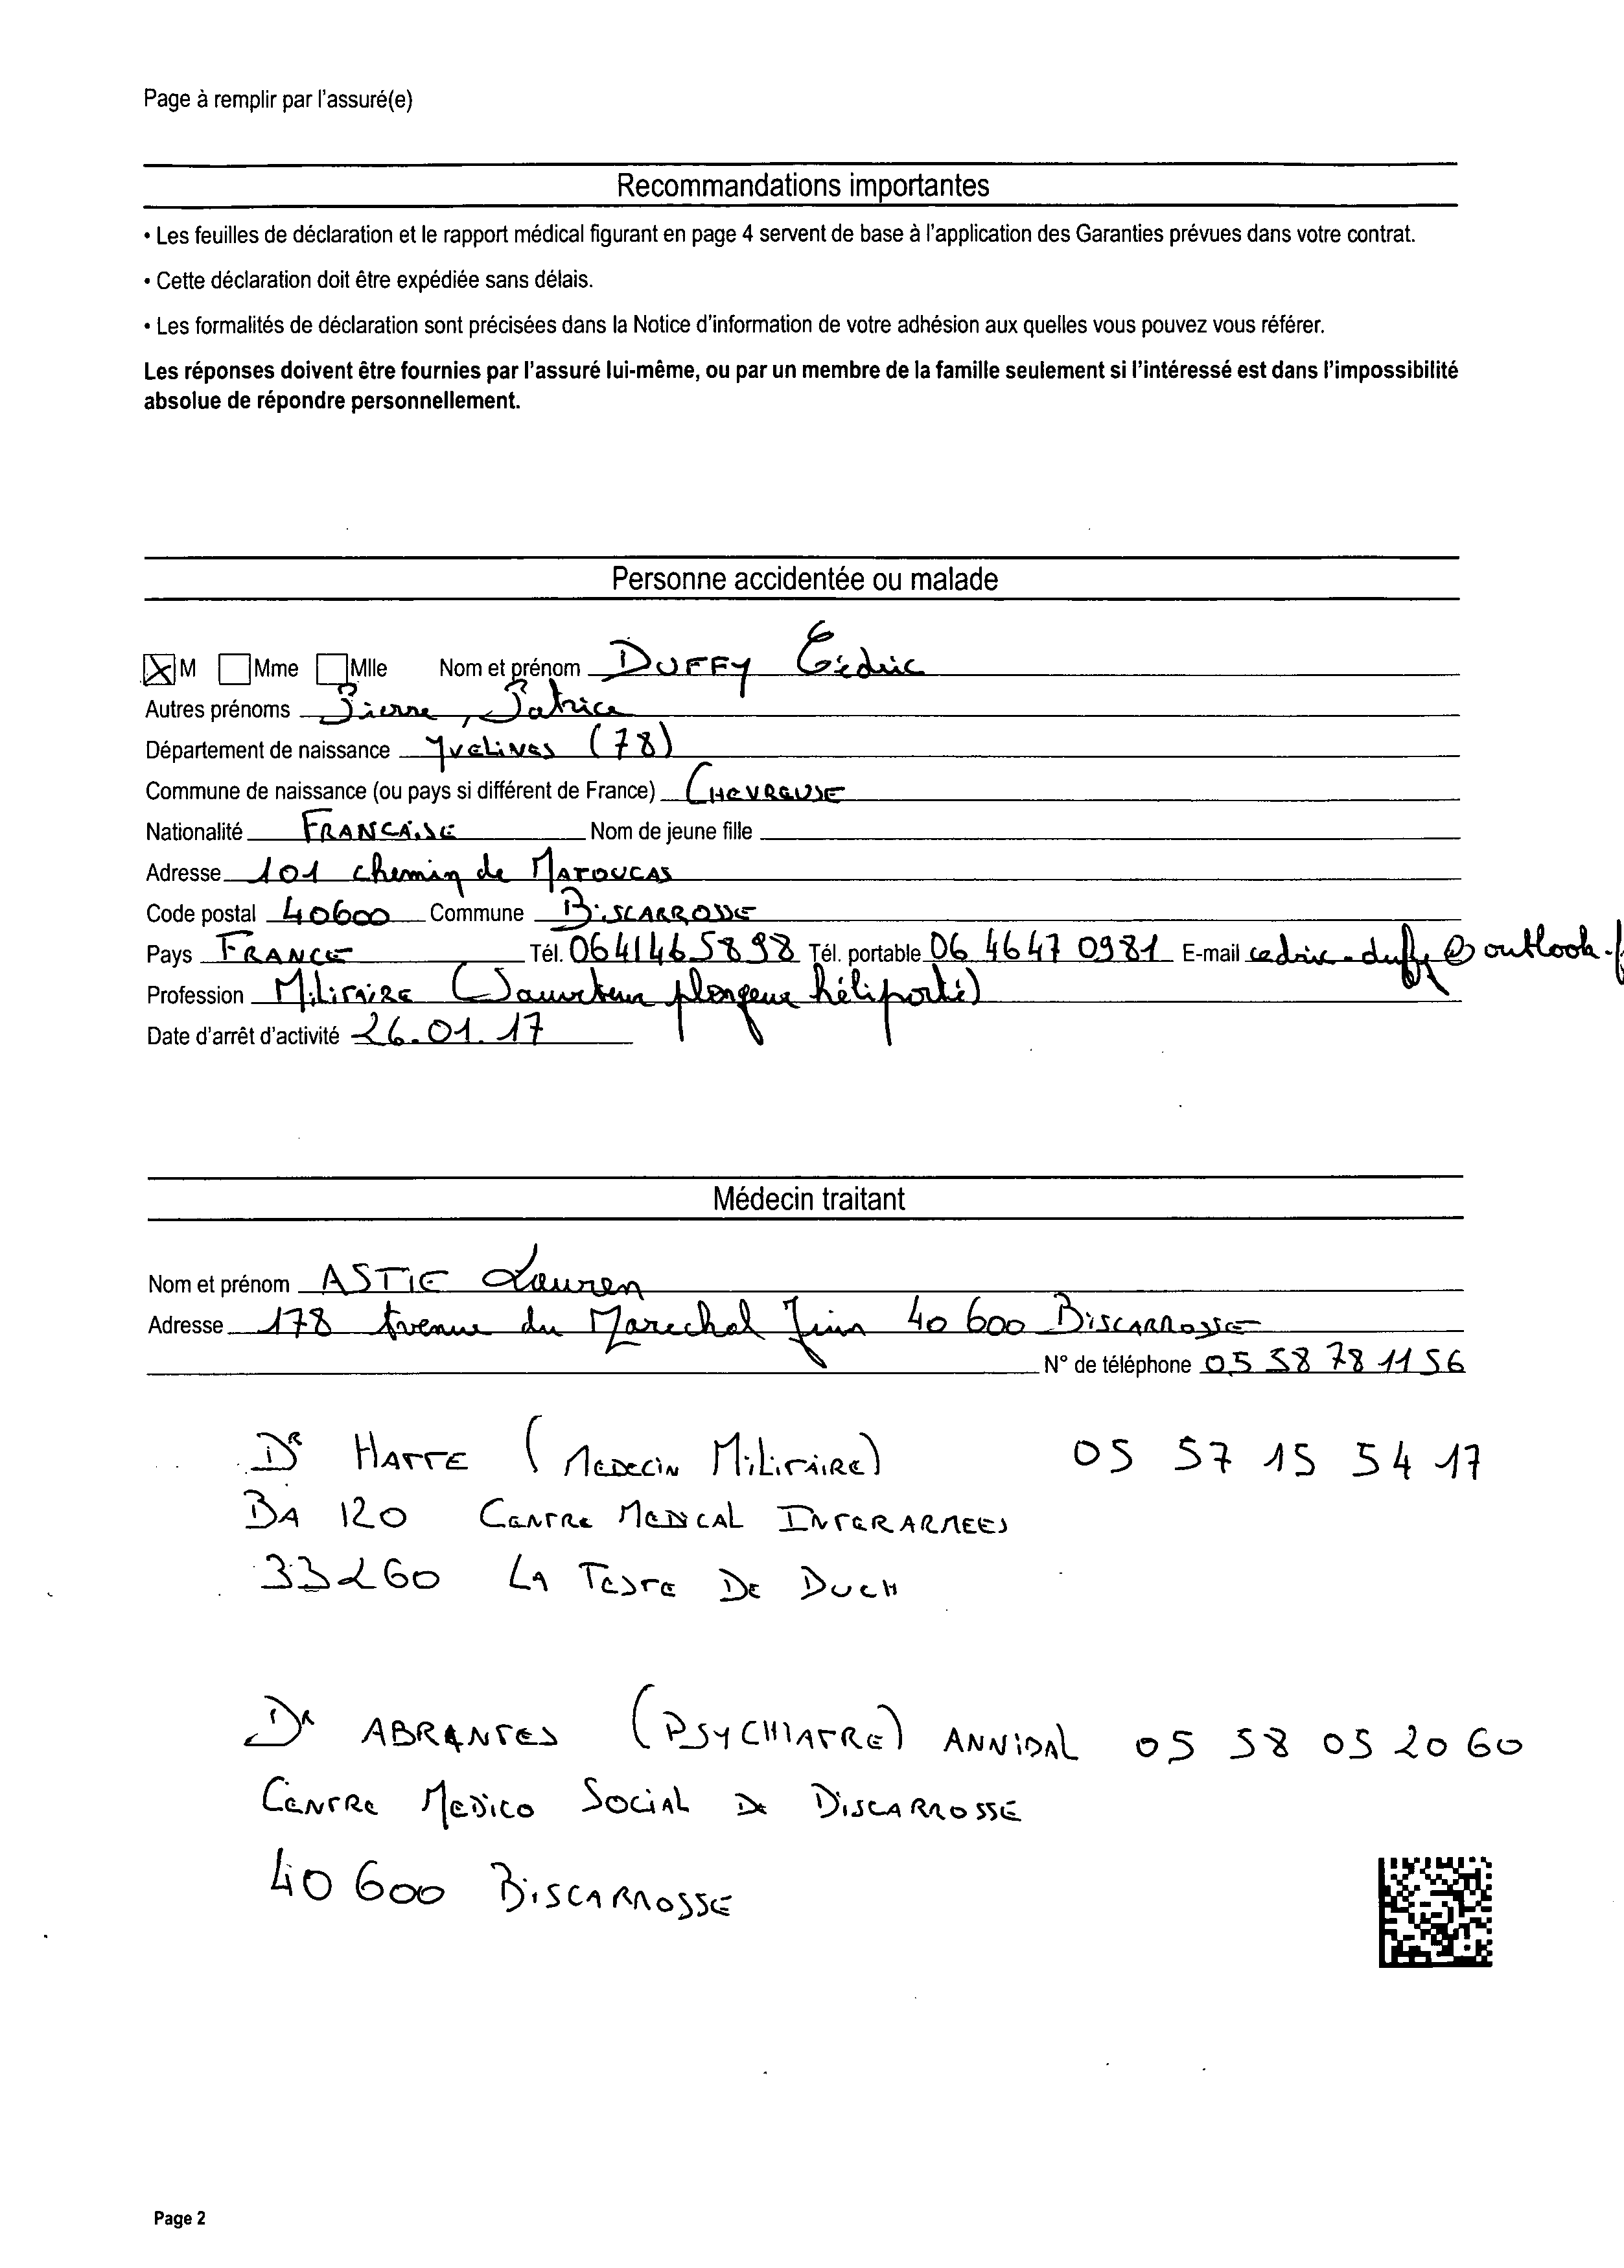 Page à remplir par l'assuré(e)
Recommandations importantes
• Les feuilles de déclaration et le rapport médical figurant en page 4 servent de base à l'application des Garanties prévues dans votre contrat.
• Cette déclaration doit être expédiée sans délais.
• Les formalités de déclaration sont précisées dans la Notice d'information de votre adhésion aux quelles vous pouvez vous référer.
Les réponses doivent être fournies par l'assuré lui-même, ou par un membre de la famille seulement si l'intéressé est dans l'impossibilité
absolue de répondre personnellement.
Personne accidentée ou malade
X M Mme Mlle Nom et prénom DUFFY Cédric
Autres prénoms Pierre, Patrice
Département de naissance YVELINES (78)
Commune de naissance (ou pays si différent de France) CHEVREUSE
Nationalité FRANCAISE Nom de jeune fille
Adresse 101 chemin de MATOUCAS
Code postal 40600 Commune BISCARROSSE
Pays FRANCE Tél. 0641465898 Tél. portable 06 46 47 0981 E-mail cedric-duffy@outlook.f
Profession MILITAIRE (Sauveteur plongeur héliporté)
Date d'arrêt d'activité 26.01.17
Médecin traitant
Nom et prénom ASTIE Lauren
Adresse 178 Avenue du Marechal Juin 40 600 BISCARROSSE
N° de téléphone 05 58 78 11 56
DR HATTE (MEDECIN MILITAIRE) 05 57 15 54 17
BA 120 CENTRE MEDICAL INTERARMEES
33260 LA TESTE DE BUCH
DR ABRANTES (PSYCHIATRE) ANNIBAL 05 58 05 20 60
CENTRE MEDICO SOCIAL DE BISCARROSSE
40 600 BISCARROSSE
Page 2